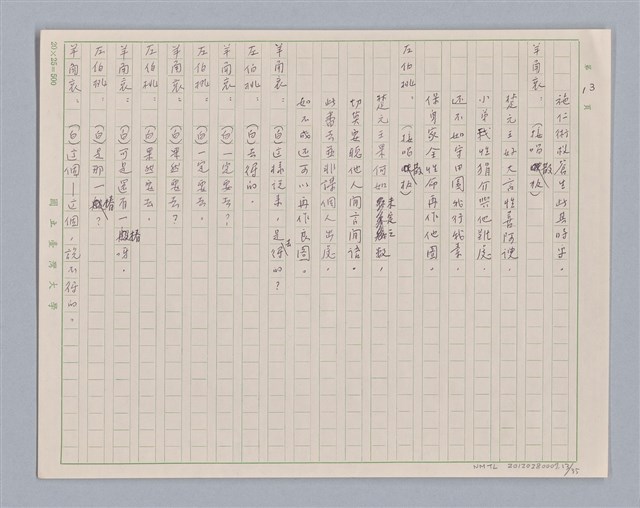 第 13 頁
施仁術救蒼生此其時乎。
羊角哀：(接唱散板)
楚元王好大言性喜防讒，
小弟我性狷介與他難處。
还不如守田園我行我素，
保身家全性命再作他圖。
左伯桃：(接唱散板)
楚元王果何如未足三數，
切莫要聽他人閒言閒語。
此番去並非謀個人出處，
如不成还可以再作良圖。
羊角哀：(白)这樣說來，是去得的？
左伯桃：(白)去得的。
羊角哀：(白)一定要去？
左伯桃：(白)一定要去。
羊角哀：(白)果然要去？
左伯桃：(白)果然要去。
羊角哀：(白)可是還有一椿呀。
左伯桃：(白)是那一椿？
羊角哀：(白)这個—这個，說不得的。
20×25＝500
國立臺灣大學
NMTL 20120280009.13/35